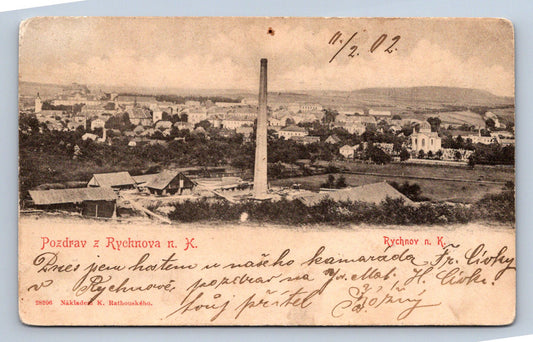 11./2. 02
Pozdrav z Rychnova n. K.
Rychnov n. K.
Dnes jsem hostem u našeho kamaráda Fr. Cívky
v Rychnově, pozdrav na Mat. H. Cívku.
tvůj přítel Požný
28206 Nákladem K. Rathouského.